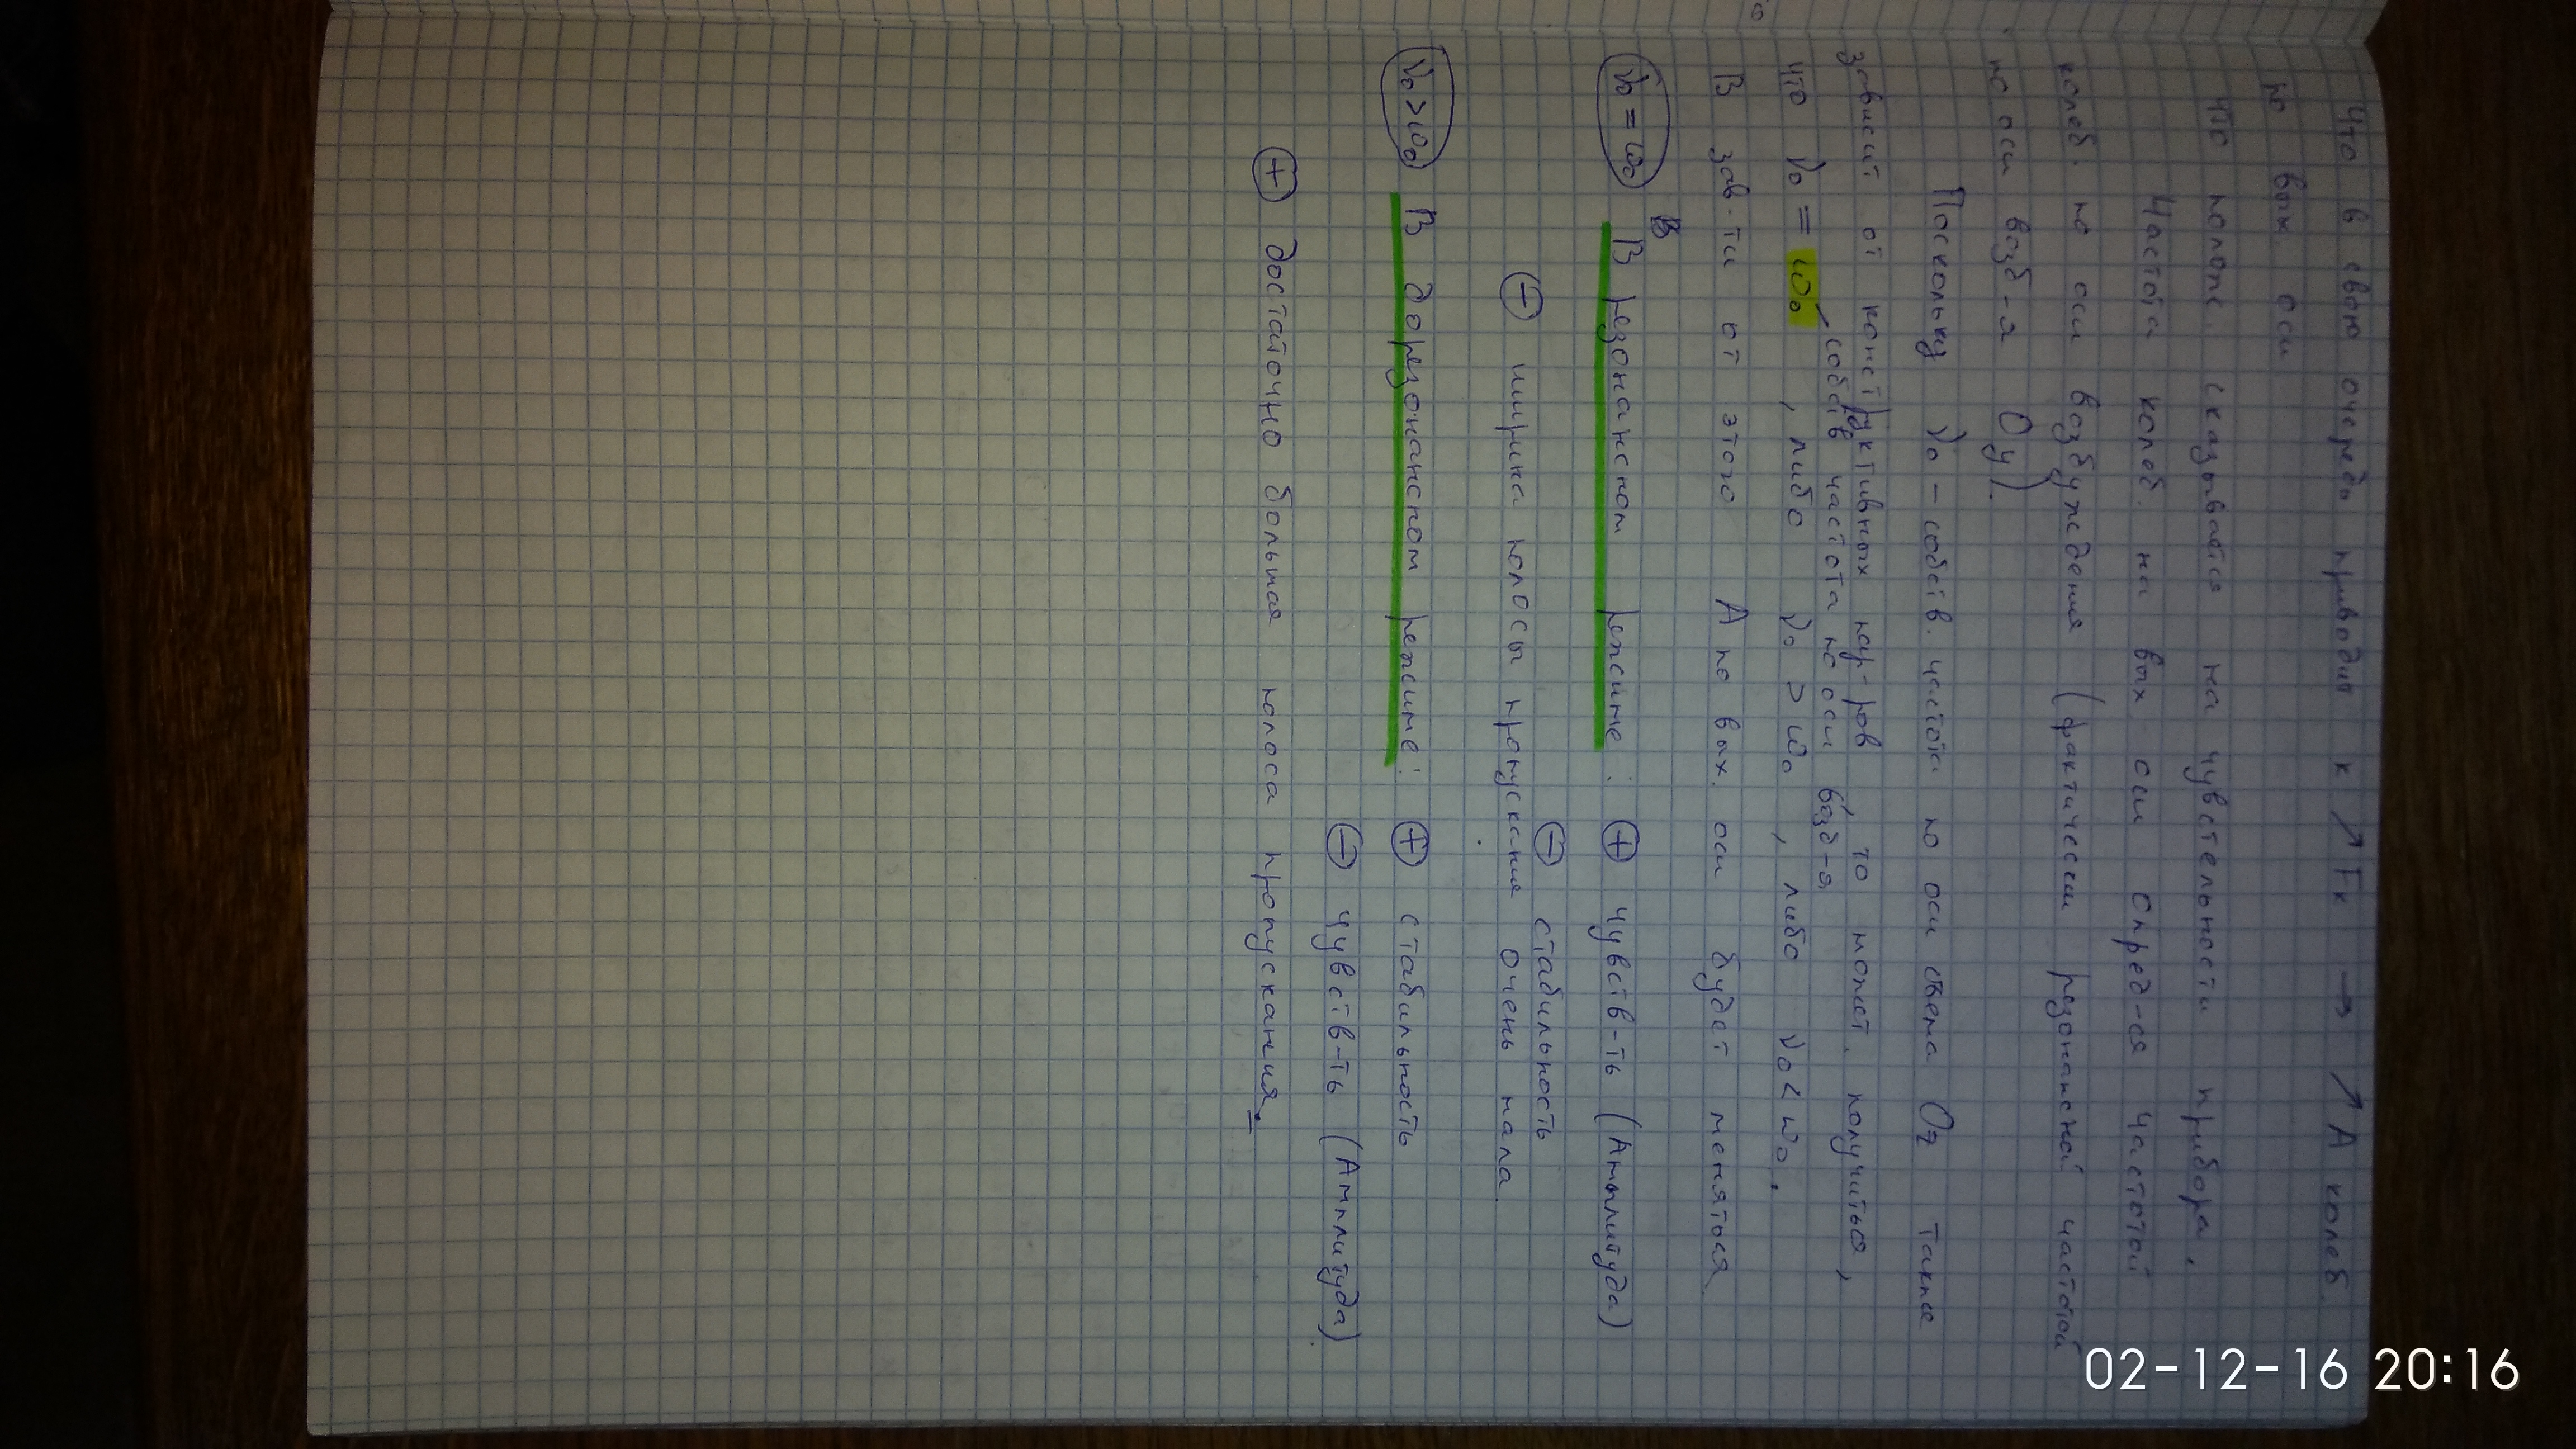 Что в свою очередь приводит к ↗ Fк → ↗ А колеб.
по вых оси
что полож. сказывается на чувствительности прибора.
Частота колеб. на вых. оси опред-ся частотой
колеб. по оси возбуждения (фактически резонансной частотой
по оси возб-я Оу).
Поскольку ν₀ - собств. частота по оси съема Oz также
зависит от конструктивных пар-ров, то может получиться,
что ν₀ = ω₀, либо ν₀ > ω₀, либо ν₀ < ω₀.
собств частота по оси возб-я
В зав-ти от этого А по вых. оси будет меняться
ν₀ = ω₀ В резонансном режиме: ⊕ чувств-ть (Амплитуда)
⊖ стабильность
⊖ ширина полосы пропускания очень мала.
ν₀ > ω₀ В дорезонансном режиме: ⊕ стабильность
⊖ чувств-ть (Амплитуда)
⊕ достаточно большая полоса пропускания.
02-12-16 20:16